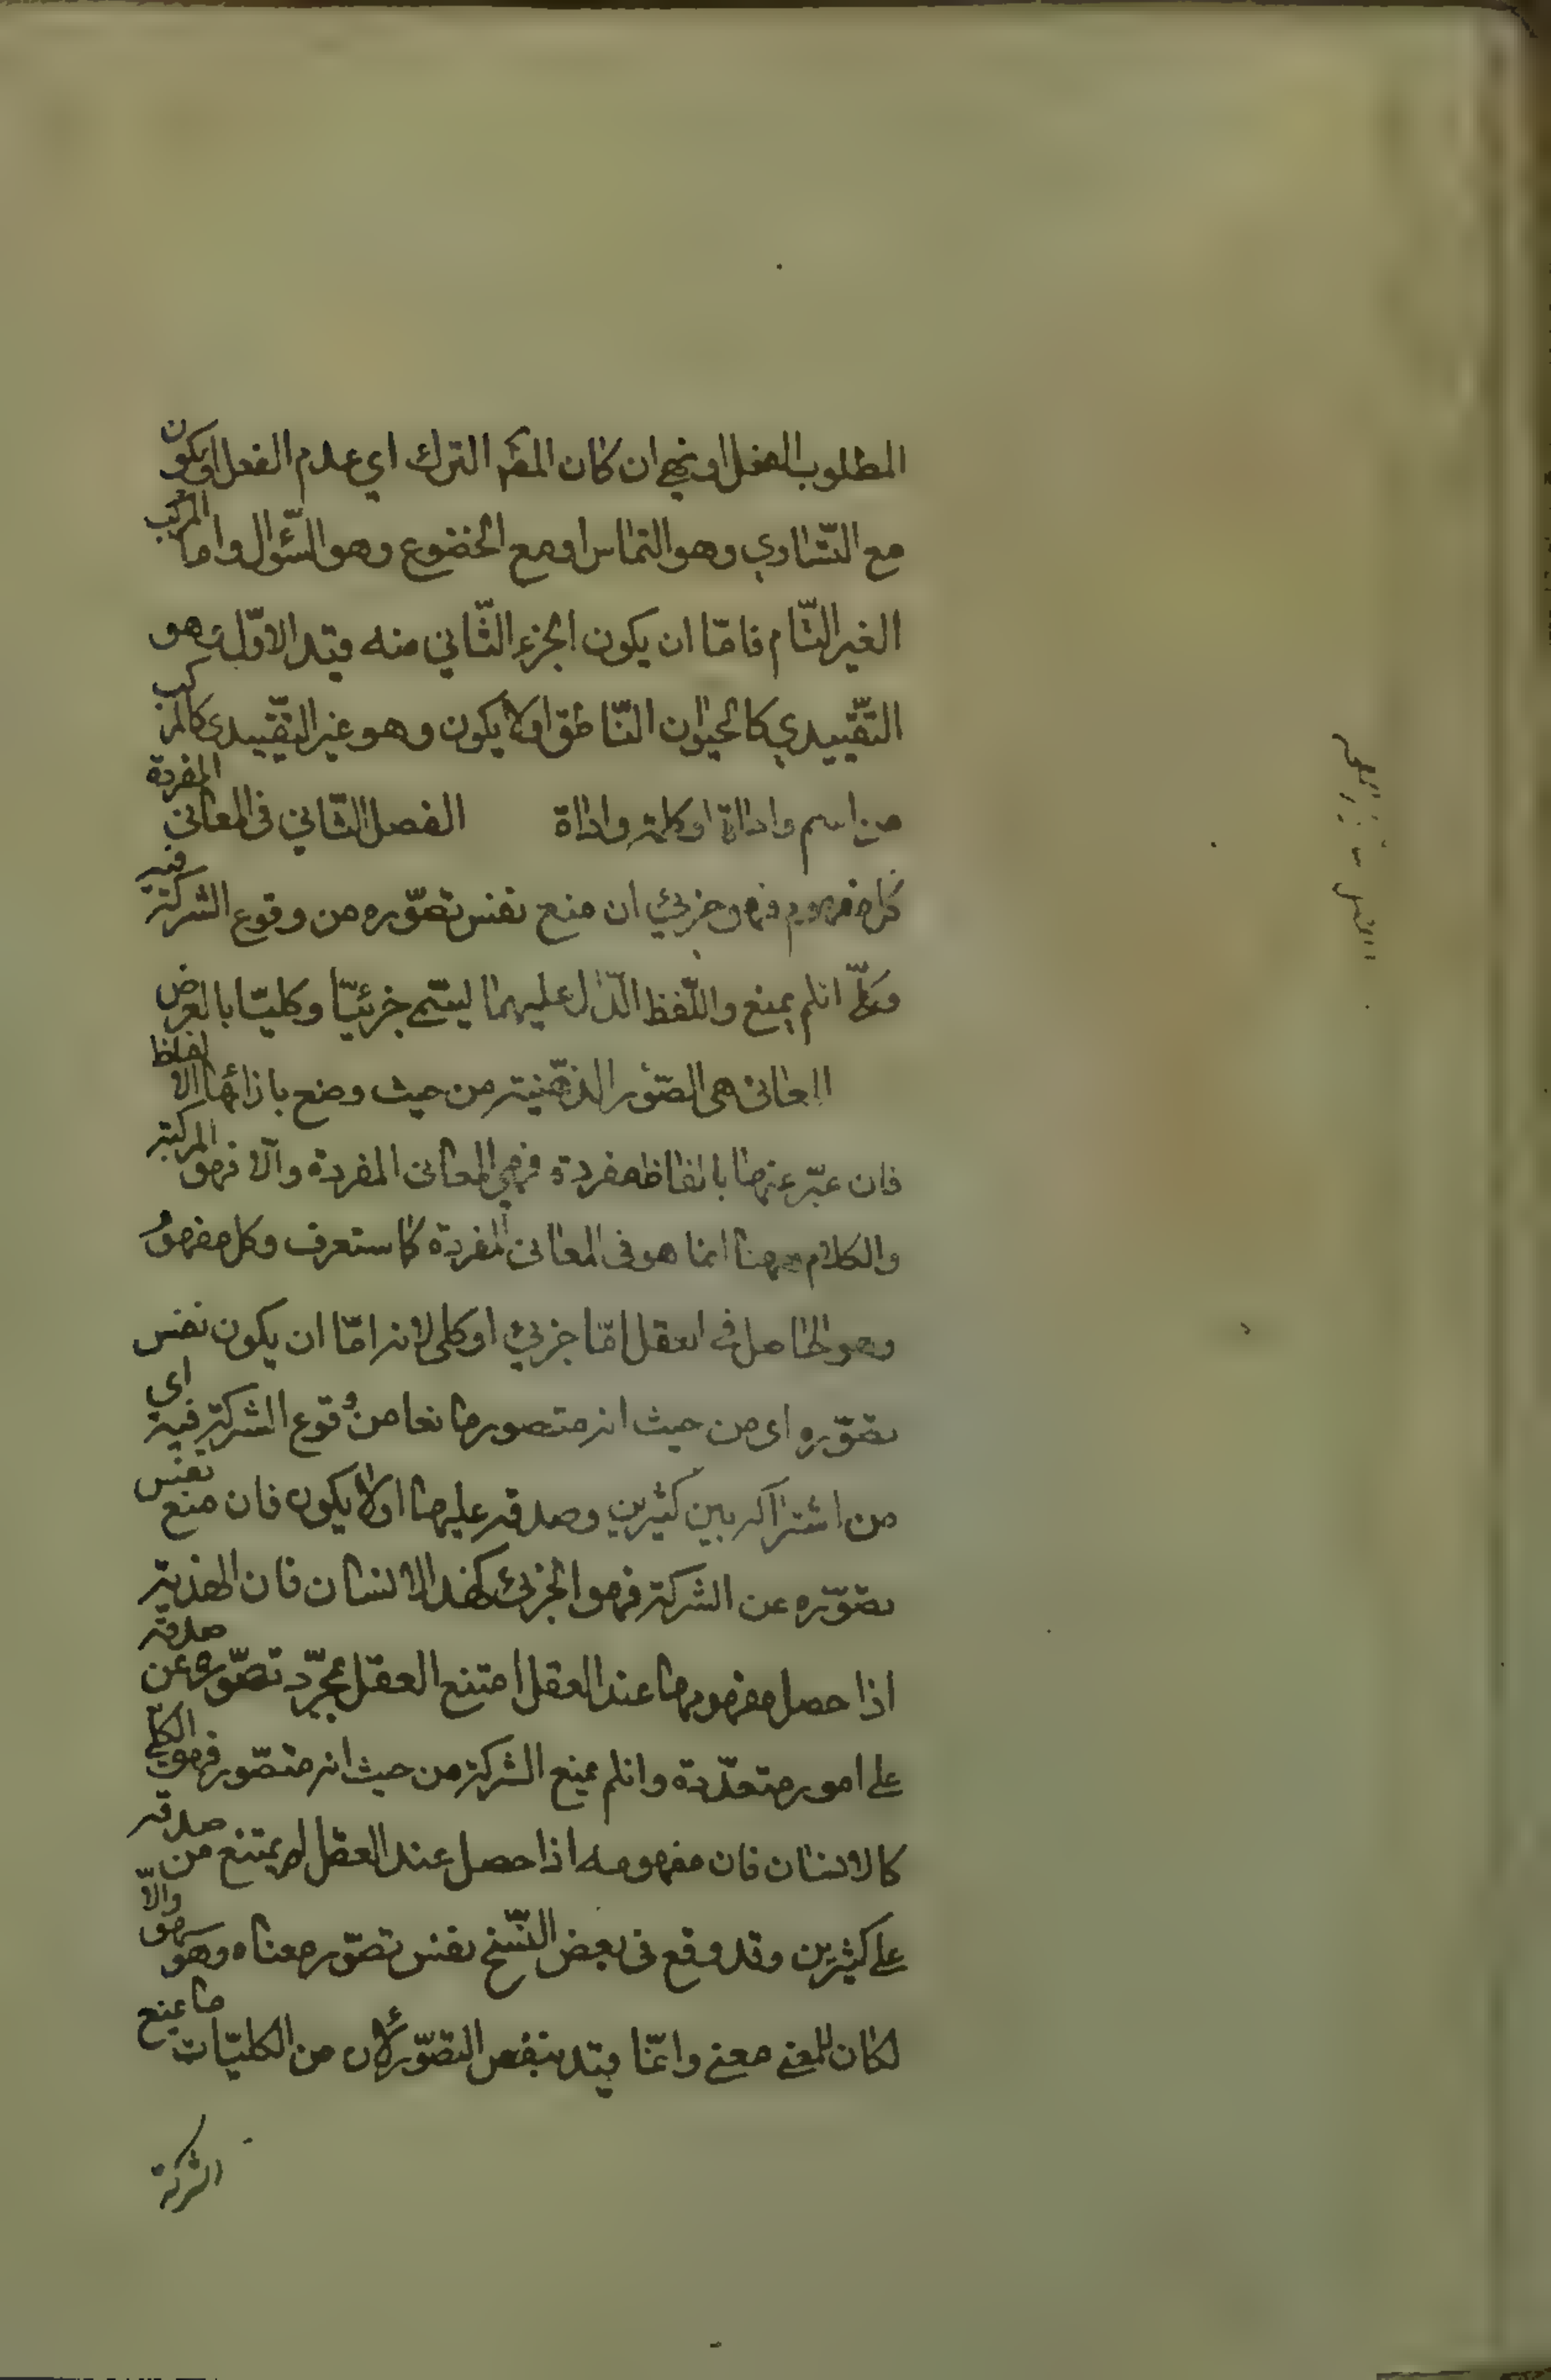 المطلوب الفعل او نهي ان كان المقم الترك اي عدم الفعل او يكون
مع التساوي وهو التماس او مع الخضوع وهو السّؤال واما المركب
الغير التّام فامّا ان يكون الجزء الثّاني منه قيد الاوّل وهو
التقّييدي كالحيوان النّاطق او لا يكون وهو غير التقّييدي كالمركب
من اسم واداة او كلمة واداة الفصل الثّاني في المعاني المفردة
كل مفهوم فهو جزئي ان منع نفس تصّوره من وقوع الشركة فيه
وكلّي انلم يمنع واللّفظ الدّال عليهما يسّمى جزئيّا وكليّا بالعرض
المعاني هي الصّور الذهّنية من حيث وضع بازائها الالفاظ
فان عبّر عنها بالفاظ مفردة فهي المعاني المفردة والّا فهو المركبة
والكلام ههنا انما هو في المعاني المفردة كما ستعرف وكل مفهوم
وهو الحاصل في العقل امّا جزئي او كلي لانه امّا ان يكون نفس
تصّوره اى من حيث انه متصور مانعا من وقوع الشركة فيه اى
من اشتراكه بين كثيرين وصدقه عليها او لا يكون فان منع نفس
تصّوره عن الشركة فهو الجزئي كهذا الانسان فان الهذية
اذا حصل مفهومها عند العقل امتنع العقل بمجرّد تصّوره عن صدقه
على امور متعدّدة وانلم يمنع الشركة من حيث انه متصّور فهو الكلي
كالانسان فان مفهومه اذا حصل عند العقل لم يمتنع من صدقه
على كثيرين وقد وقع في بعض النّسخ نفس تصّور معناه وهو سهو والّا
لكان للمعنى معنى وانّما قيد بنفس التصّور لان من الكليّات ما يمنع
الشركة